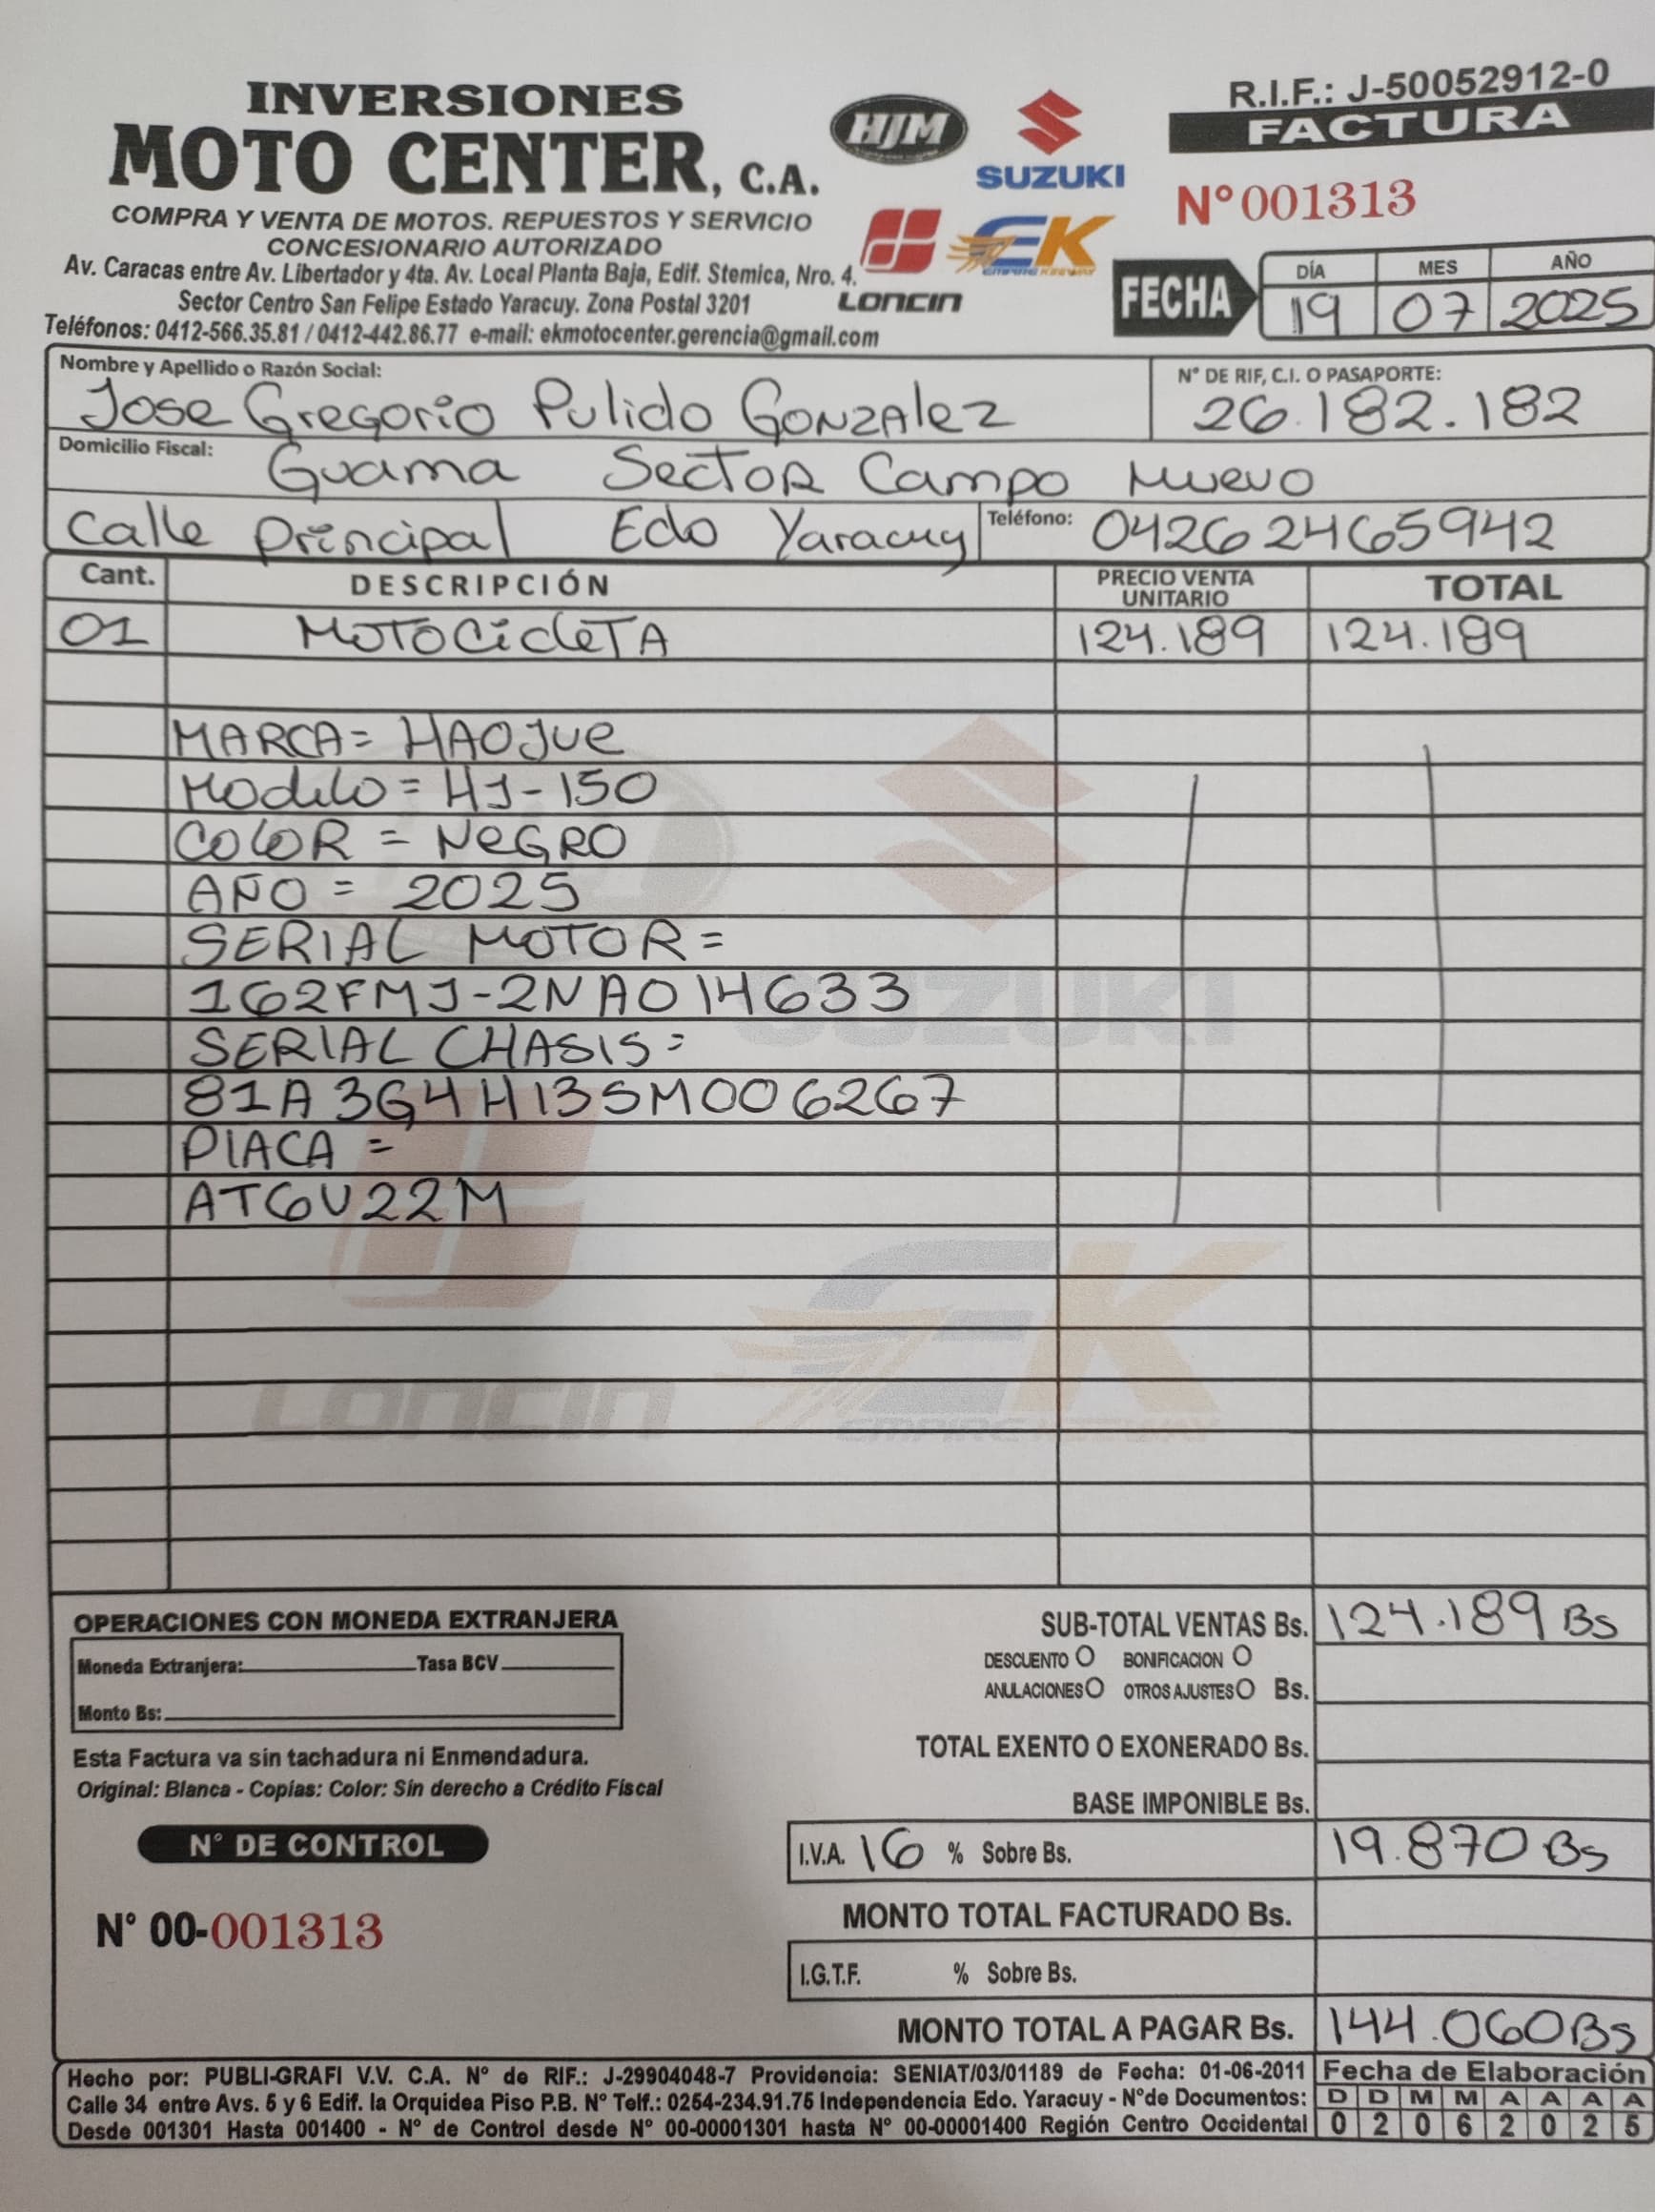 INVERSIONES
MOTO CENTER, C.A.
COMPRA Y VENTA DE MOTOS. REPUESTOS Y SERVICIO
CONCESIONARIO AUTORIZADO
Av. Caracas entre Av. Libertador y 4ta. Av. Local Planta Baja, Edif. Stemica, Nro. 4.
Sector Centro San Felipe Estado Yaracuy. Zona Postal 3201
Teléfonos: 0412-566.35.81 / 0412-442.86.77 e-mail: ekmotocenter.gerencia@gmail.com
HJM
SUZUKI
LONCIN
EK
EMPIRE KEEWAY
R.I.F.: J-50052912-0
FACTURA
N° 001313
FECHA
DÍA MES AÑO
19 07 2025
Nombre y Apellido o Razón Social: N° DE RIF, C.I. O PASAPORTE:
Jose Gregorio Pulido GONZAlez 26.182.182
Domicilio Fiscal: Guama SecToR Campo Nuevo
Calle principal Edo Yaracuy Teléfono: 04262465942
Cant. DESCRIPCIÓN PRECIO VENTA UNITARIO TOTAL
01 MOTOCicleTA 124.189 124.189
MARCA= HAOJUe
Modelo = HJ-150
COloR = NeGRO
AÑO = 2025
SERIAL MOTOR =
162FMJ-2NA014633
SERIAL CHASIS =
81A3G4H13SM006267
PlACA =
AT6U22M
SUZUKI
LONCIN
EK
EMPIRE KEEWAY
OPERACIONES CON MONEDA EXTRANJERA
Moneda Extranjera: Tasa BCV
Monto Bs:
Esta Factura va sin tachadura ni Enmendadura.
Original: Blanca - Copias: Color: Sin derecho a Crédito Fiscal
N° DE CONTROL
N° 00-001313
SUB-TOTAL VENTAS Bs. 124.189 Bs
DESCUENTO BONIFICACION
ANULACIONES OTROS AJUSTES Bs.
TOTAL EXENTO O EXONERADO Bs.
BASE IMPONIBLE Bs.
I.V.A. 16 % Sobre Bs. 19.870 Bs
MONTO TOTAL FACTURADO Bs.
I.G.T.F. % Sobre Bs.
MONTO TOTAL A PAGAR Bs. 144.060 Bs
Hecho por: PUBLI-GRAFI V.V. C.A. N° de RIF.: J-29904048-7 Providencia: SENIAT/03/01189 de Fecha: 01-06-2011
Calle 34 entre Avs. 5 y 6 Edif. la Orquidea Piso P.B. N° Telf.: 0254-234.91.75 Independencia Edo. Yaracuy - N°de Documentos:
Desde 001301 Hasta 001400 - N° de Control desde N° 00-00001301 hasta N° 00-00001400 Región Centro Occidental
Fecha de Elaboración
D D M M A A A A
0 2 0 6 2 0 2 5